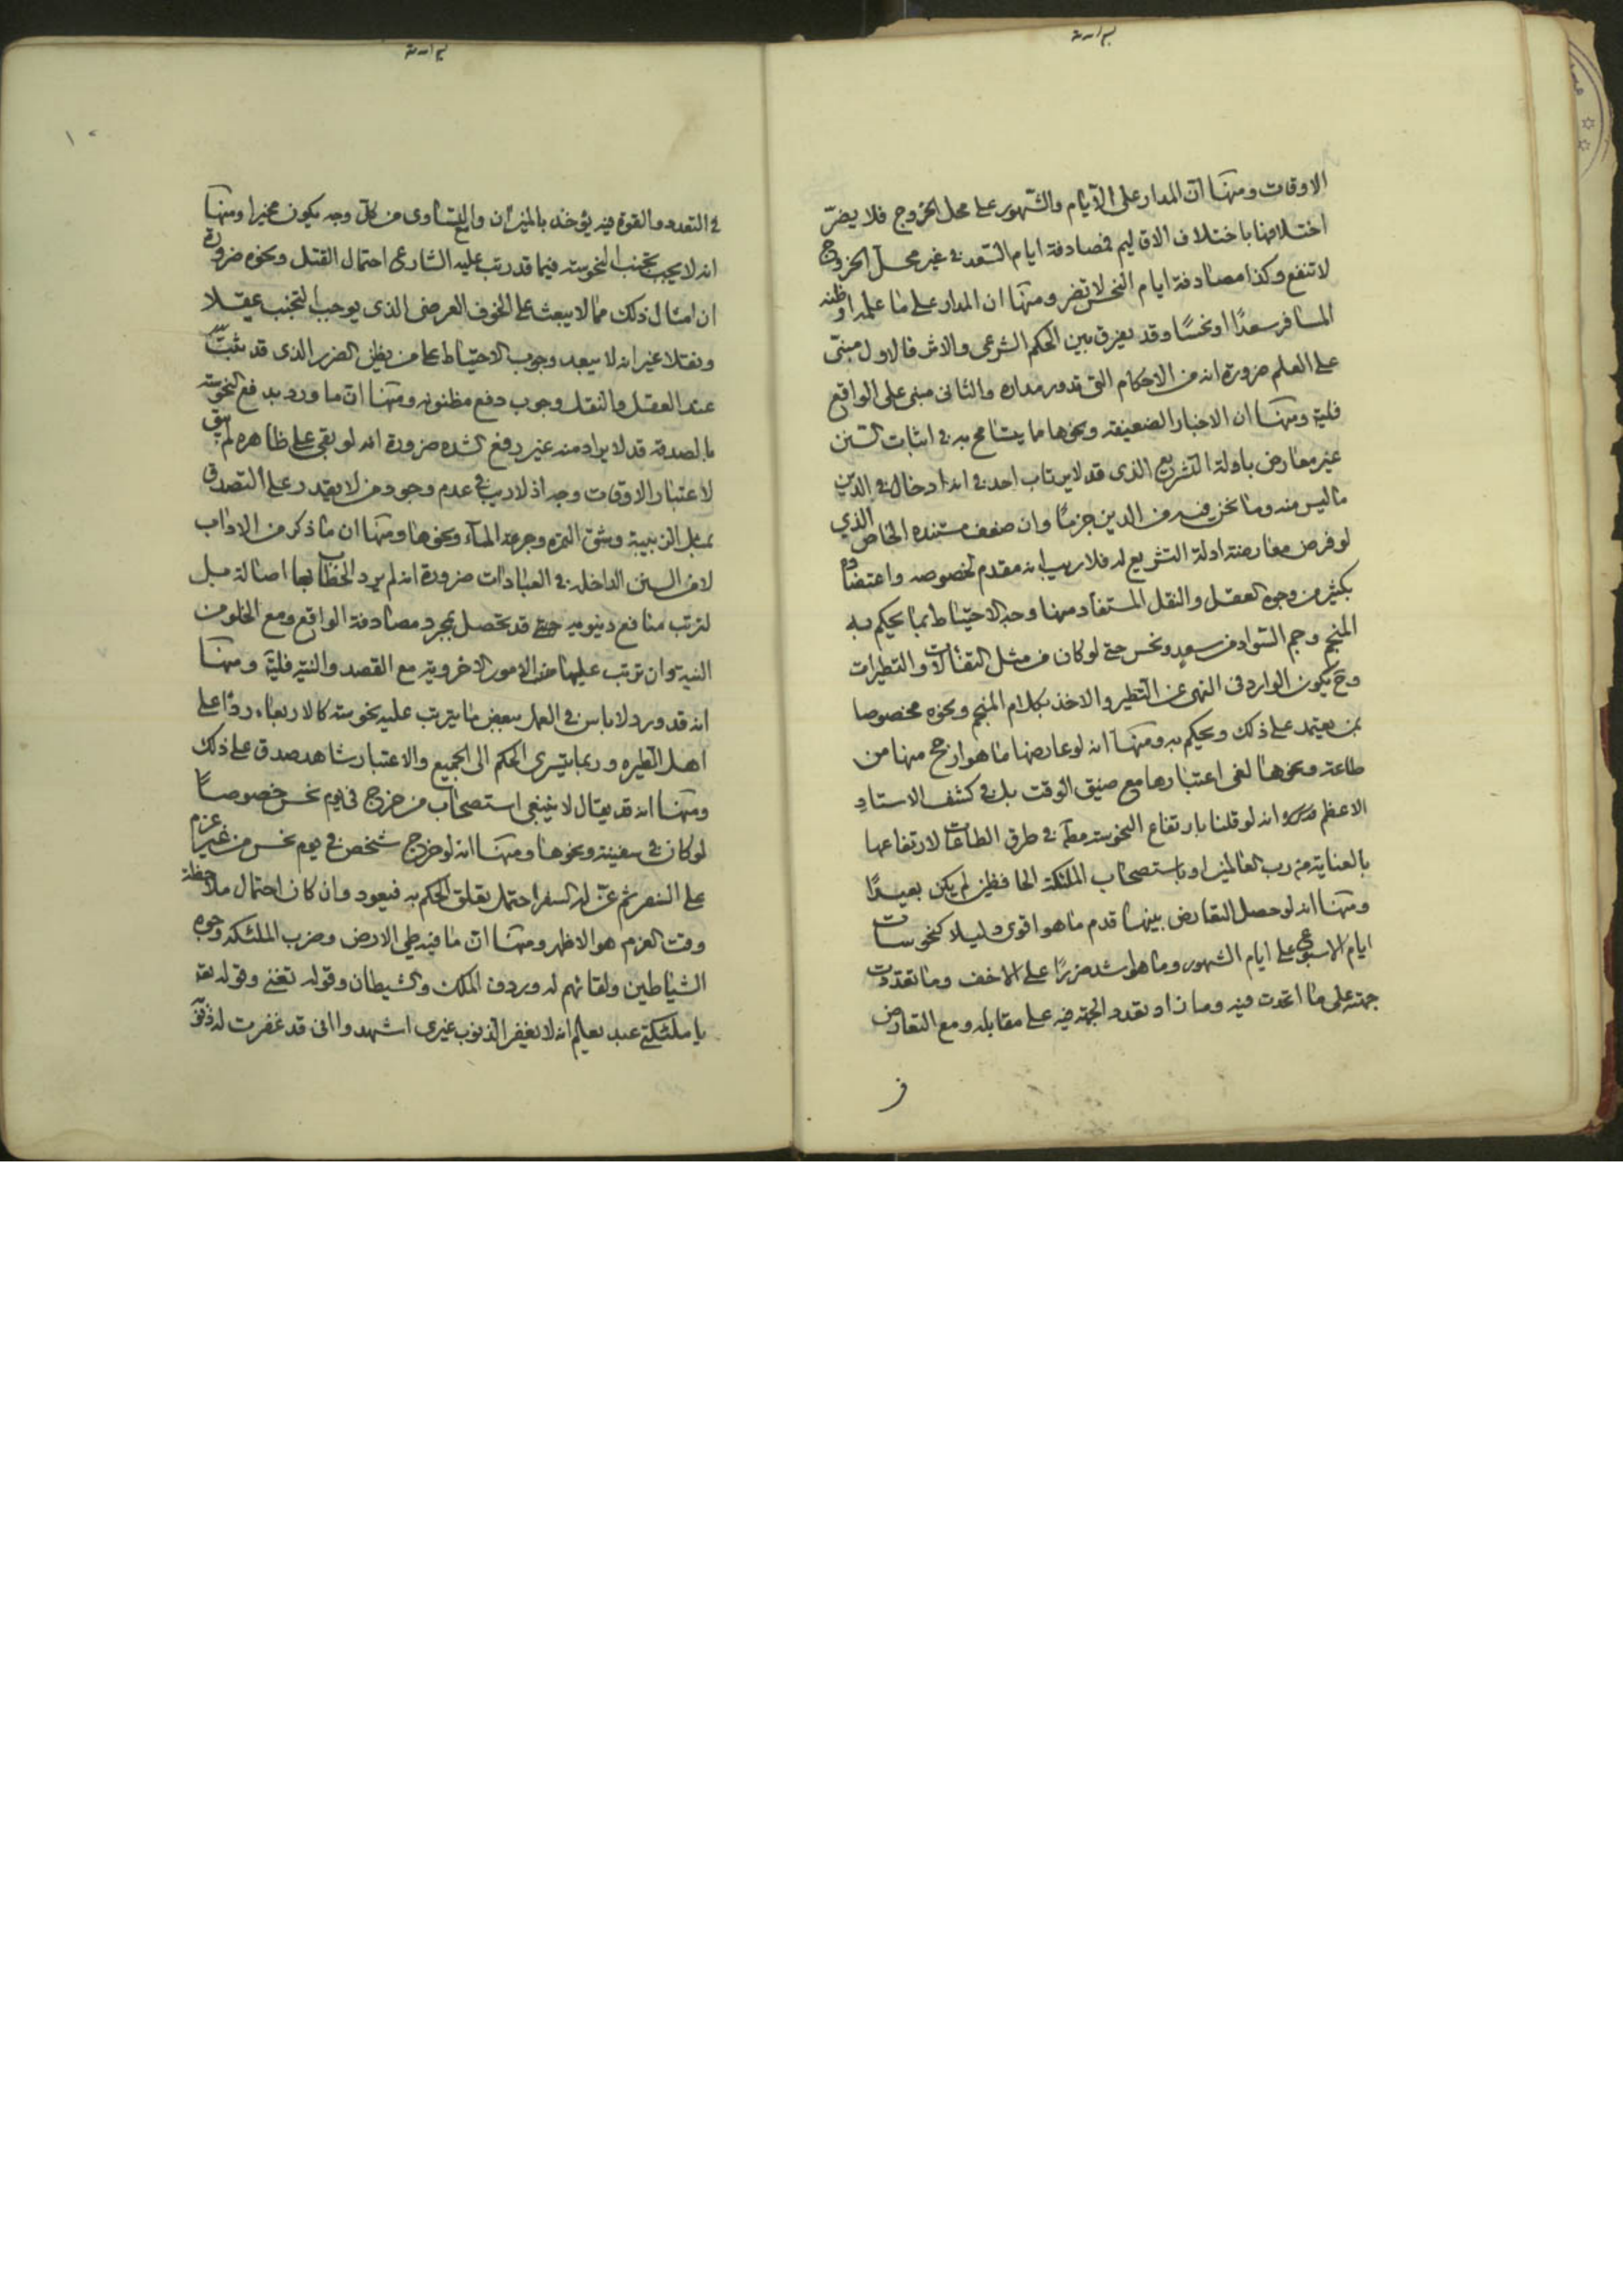 الاوقات ومنها ان المدار على الايام والشهور على محل الخروج فلا يضرّ
اختلافها باختلاف الاقاليم فصادفة ايام السعد في غير محل الخروج
لا تنفع وكذا مصادفة ايام النحس لا تضر ومنها ان المدار على ما علمه او ظنه
المسافر سعدًا او نحسًا وقد يفرق بين الحكم الشرعى والاثر فالاول مبنىّ
على العلم ضرورة انه من الاحكام التى تدور مداره والثانى مبنى على الواقع
فليته ومنها ان الاخبار الضعيفة ونحوها مما يتسامح به في اثبات السنن
غير معارض بادلة التشريع الذى قد لا يرتاب احد في انه ادخال في الدين
ما ليس منه وما نحن فيه من الدين جزمًا وان ضعف مستنده الخاص الذي
لو فرض معارضته ادلة التشريع له فلا ريب انه مقدم لخصوصه واعتضاده
بكثير من وجوه العقل والنقل المستفاد منها وجه الاحتياط بما يحكم به
المنجم وجم السواد من سعد ونحس حتى لو كان من مثل التفالات والتطيرات
وح يكون الوارد فى النهى عن التطير والاخذ بكلام المنجم ونحوه مخصوصا
بمن يعتمد على ذلك ويحكم به ومنها انه لو عارضها ما هو ارجح منها من
طاعته ونحوها لغى اعتبارها مع ضيق الوقت بل في كشف الاستاد
الاعظم انه لو قلنا بارتفاع النحوسة مط في طرق الطاعات لارتفاعها
بالعناية من رب العالمين او باستصحاب الملئكة الحافظين لم يكن بعيدًا
ومنها انه لو حصل التعارض بينها قدم ما هو اقوى دليلا كنحوسات
ايام الاسبوعى على ايام الشهور وما هو اشد ضررًا على الاخف وما تعددت
جهته على ما اتحدت فيه وما زاد تعدد الجهة فيه على مقابله ومع التعارض
في التعدد والقوة فيه يؤخذ بالميزان والتساوى من كل وجه يكون مخيرا ومنها
انه لا يجب تجنب النحوسة فيما قد رتب عليه الشارع احتمال القتل ونحوه ضرورة
ان امثال ذلك مما لا يبعث على الخوف العرضى الذى يوجب التجنب عقلا
ونقلا غير انه لا يبعد وجوب الاحتياط على من يظن الضرر الذى قد يثبت
عند العقل والنقل وجوب دفع مظنونه ومنها ان ما ورد بدفع النحوسة
بالصدقة قد لا يراد منه غير رفع الشده ضرورة انه لو بقى على ظاهره لم يبق
لاعتبار الاوقات وجه اذ لا ريب في عدم وجود من لا يقدر على التصدق
بمثل الزبيبة وشق التمرة وجرعة الماء ونحوها ومنها ان ما ذكر من الاداب
لا من السنن الداخلة في العبادات ضرورة انه لم يرد الخطاب بها اصالة بل
لترتب منافع دنيويه حتى قد تحصل بمجرد مصادفة الواقع ومع الخلو من
النية وان ترتب عليها من الامور الاخروية مع القصد والنية فليته ومنها
انه قد ورد لا باس في العمل ببعض ما يترتب عليه نحوسته كالاربعاء ردًا على
اهل الطيره وربما يتسرى الحكم الى الجميع والاعتبار شاهد صدق على ذلك
ومنها انه قد يقال لا ينبغى استصحاب من خرج فى يوم نحس خصوصًا
لو كان في سفينة ونحوها ومنها انه لو خرج شخص في يوم نحس من غير عزم
على السفر ثم عنّ له السفر احتمل تعلق الحكم به فيعود وان كان احتمال ملاحظة
وقت العزم هو الاظهر ومنها ان ما فيه طى الارض وضرب الملئكة وجوه
الشياطين ولقائهم له وردف الملك والشيطان وقوله تغنّ وقوله تعه
يا ملئكتى عبد يعلم انه لا يغفر الذنوب غيرى اشهدوا انى قد غفرت له ذنوبه